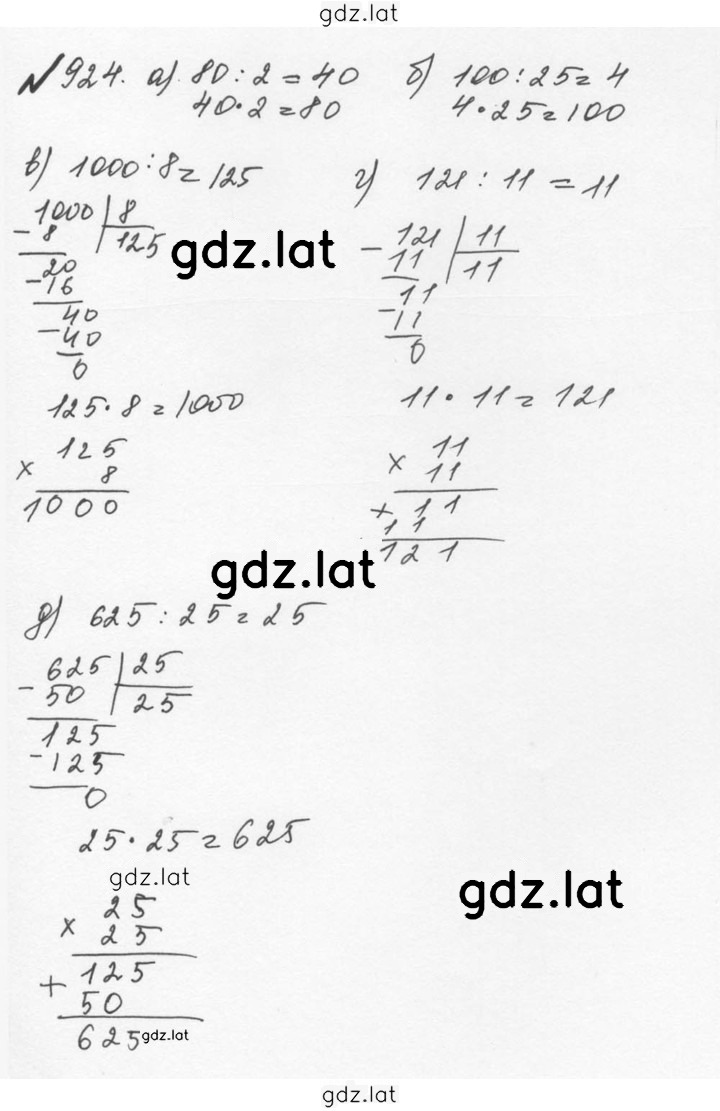 gdz.lat
№ 924. а) 80 : 2 = 40 б) 100 : 25 = 4
40 · 2 = 80 4 · 25 = 100
в) 1000 : 8 = 125 г) 121 : 11 = 11
1000 | 8 121 | 11
- 8 125 gdz.lat - 11 11
20 11
- 16 - 11
40 0
- 40
0
125 · 8 = 1000 11 · 11 = 121
125 11
× 8 × 11
1000 + 11
11
121
gdz.lat
д) 625 : 25 = 25
625 | 25
- 50 25
125
- 125
0
25 · 25 = 625
gdz.lat
25 gdz.lat
× 25
+ 125
50
625 gdz.lat
gdz.lat